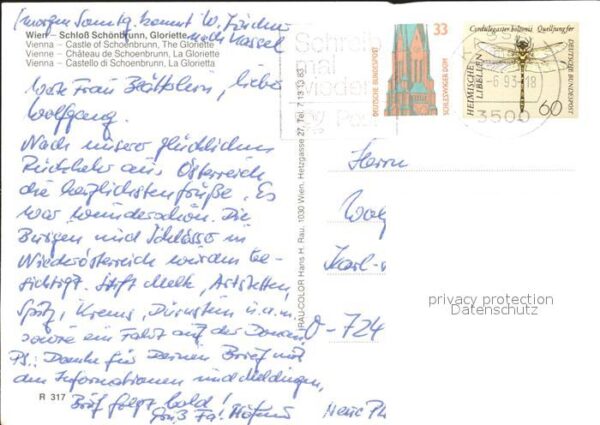 (morgen Sonntg. kommt W. Fischer
nach Kassel
Wien – Schloß Schönbrunn, Gloriette
Vienna – Castle of Schoenbrunn, The Gloriette
Vienne – Château de Schoenbrunn, La Gloriette
Vienna – Castello di Schoenbrunn, La Glorietta
Liebe Frau lieber
Wolfgang.
Nach unserer glücklichen
Rückkehr aus Österreich
die herzlichsten Grüße. Es
war wunderschön. Die
Burgen und Schlösser in
Niederösterreich wurden be-
sichtigt. Stift Melk, Artstetten,
Spitz, Krems, Dürnstein u.a.m.
sowie ein Fahrt auf der Donau.
PS.: Danke für Deinen Brief mit
den Informationen und Meldungen,
Brief folgt bald!
Gruß Fa.
R 317
RAU-COLOR Hans H. Rau, 1030 Wien, Hetzgasse 27, Tel. 7 13 13 63
Schreib
mal
wieder
Post
33
DEUTSCHE BUNDESPOST
SCHLESWIGER DOM
Cordulegaster boltonii Quelljungfer
HEIMISCHE LIBELLEN
DEUTSCHE BUNDESPOST
60
-6.93-18
3500
Herrn
Wolf
Karl-
O-724
privacy protection
Datenschutz